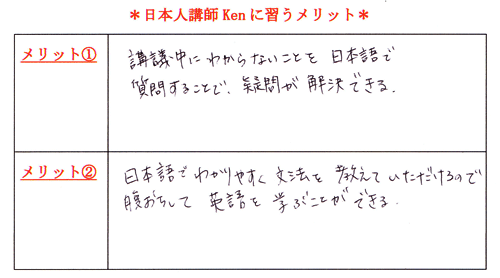 ＊日本人講師 Ken に習うメリット＊
メリット①
講議中にわからないことを日本語で
質問することで、疑問が解決できる.
メリット②
日本語でわかりやすく文法を教えていただけるので
腹おちして英語を学ぶことができる.